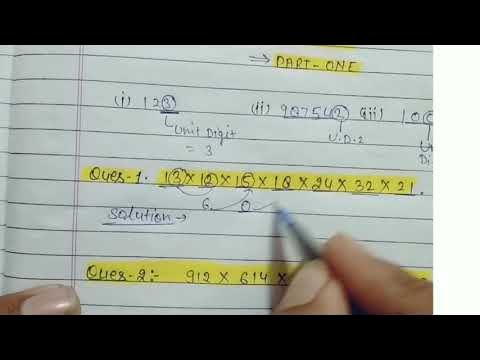 ⇒ PART-ONE
(i) 123 (ii) 987542 (iii) 10
Unit Digit U.D. 2 Unit
= 3 Di
Ques-1. 13 × 12 × 15 × 18 × 24 × 32 × 21.
6 0
Solution →
Ques-2:- 912 × 614 ×